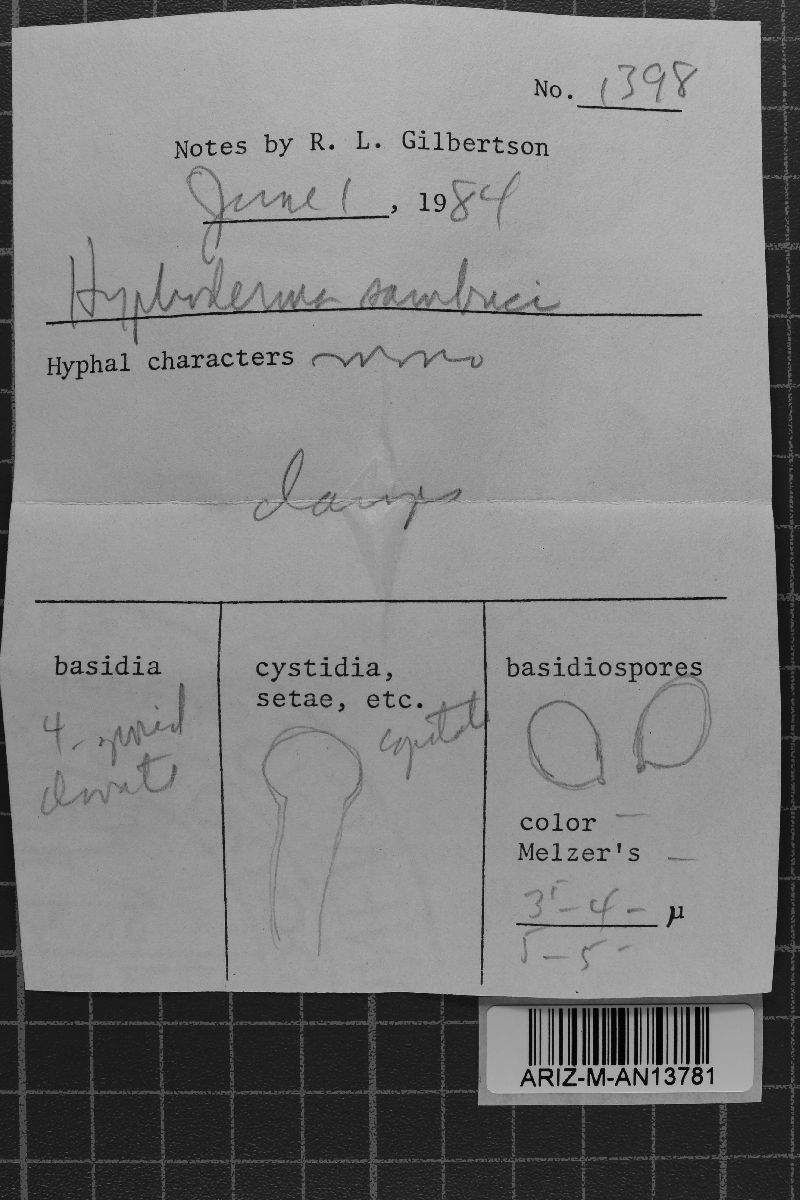 No. 1398
Notes by R. L. Gilbertson
June 1, 1984
Hyphoderma sambuci
Hyphal characters mono
clamps
basidia
4-spored
clavate
cystidia,
setae, etc.
capitate
basidiospores
color –
Melzer's –
3⁵-4- µ
5-5-
ARIZ-M-AN13781